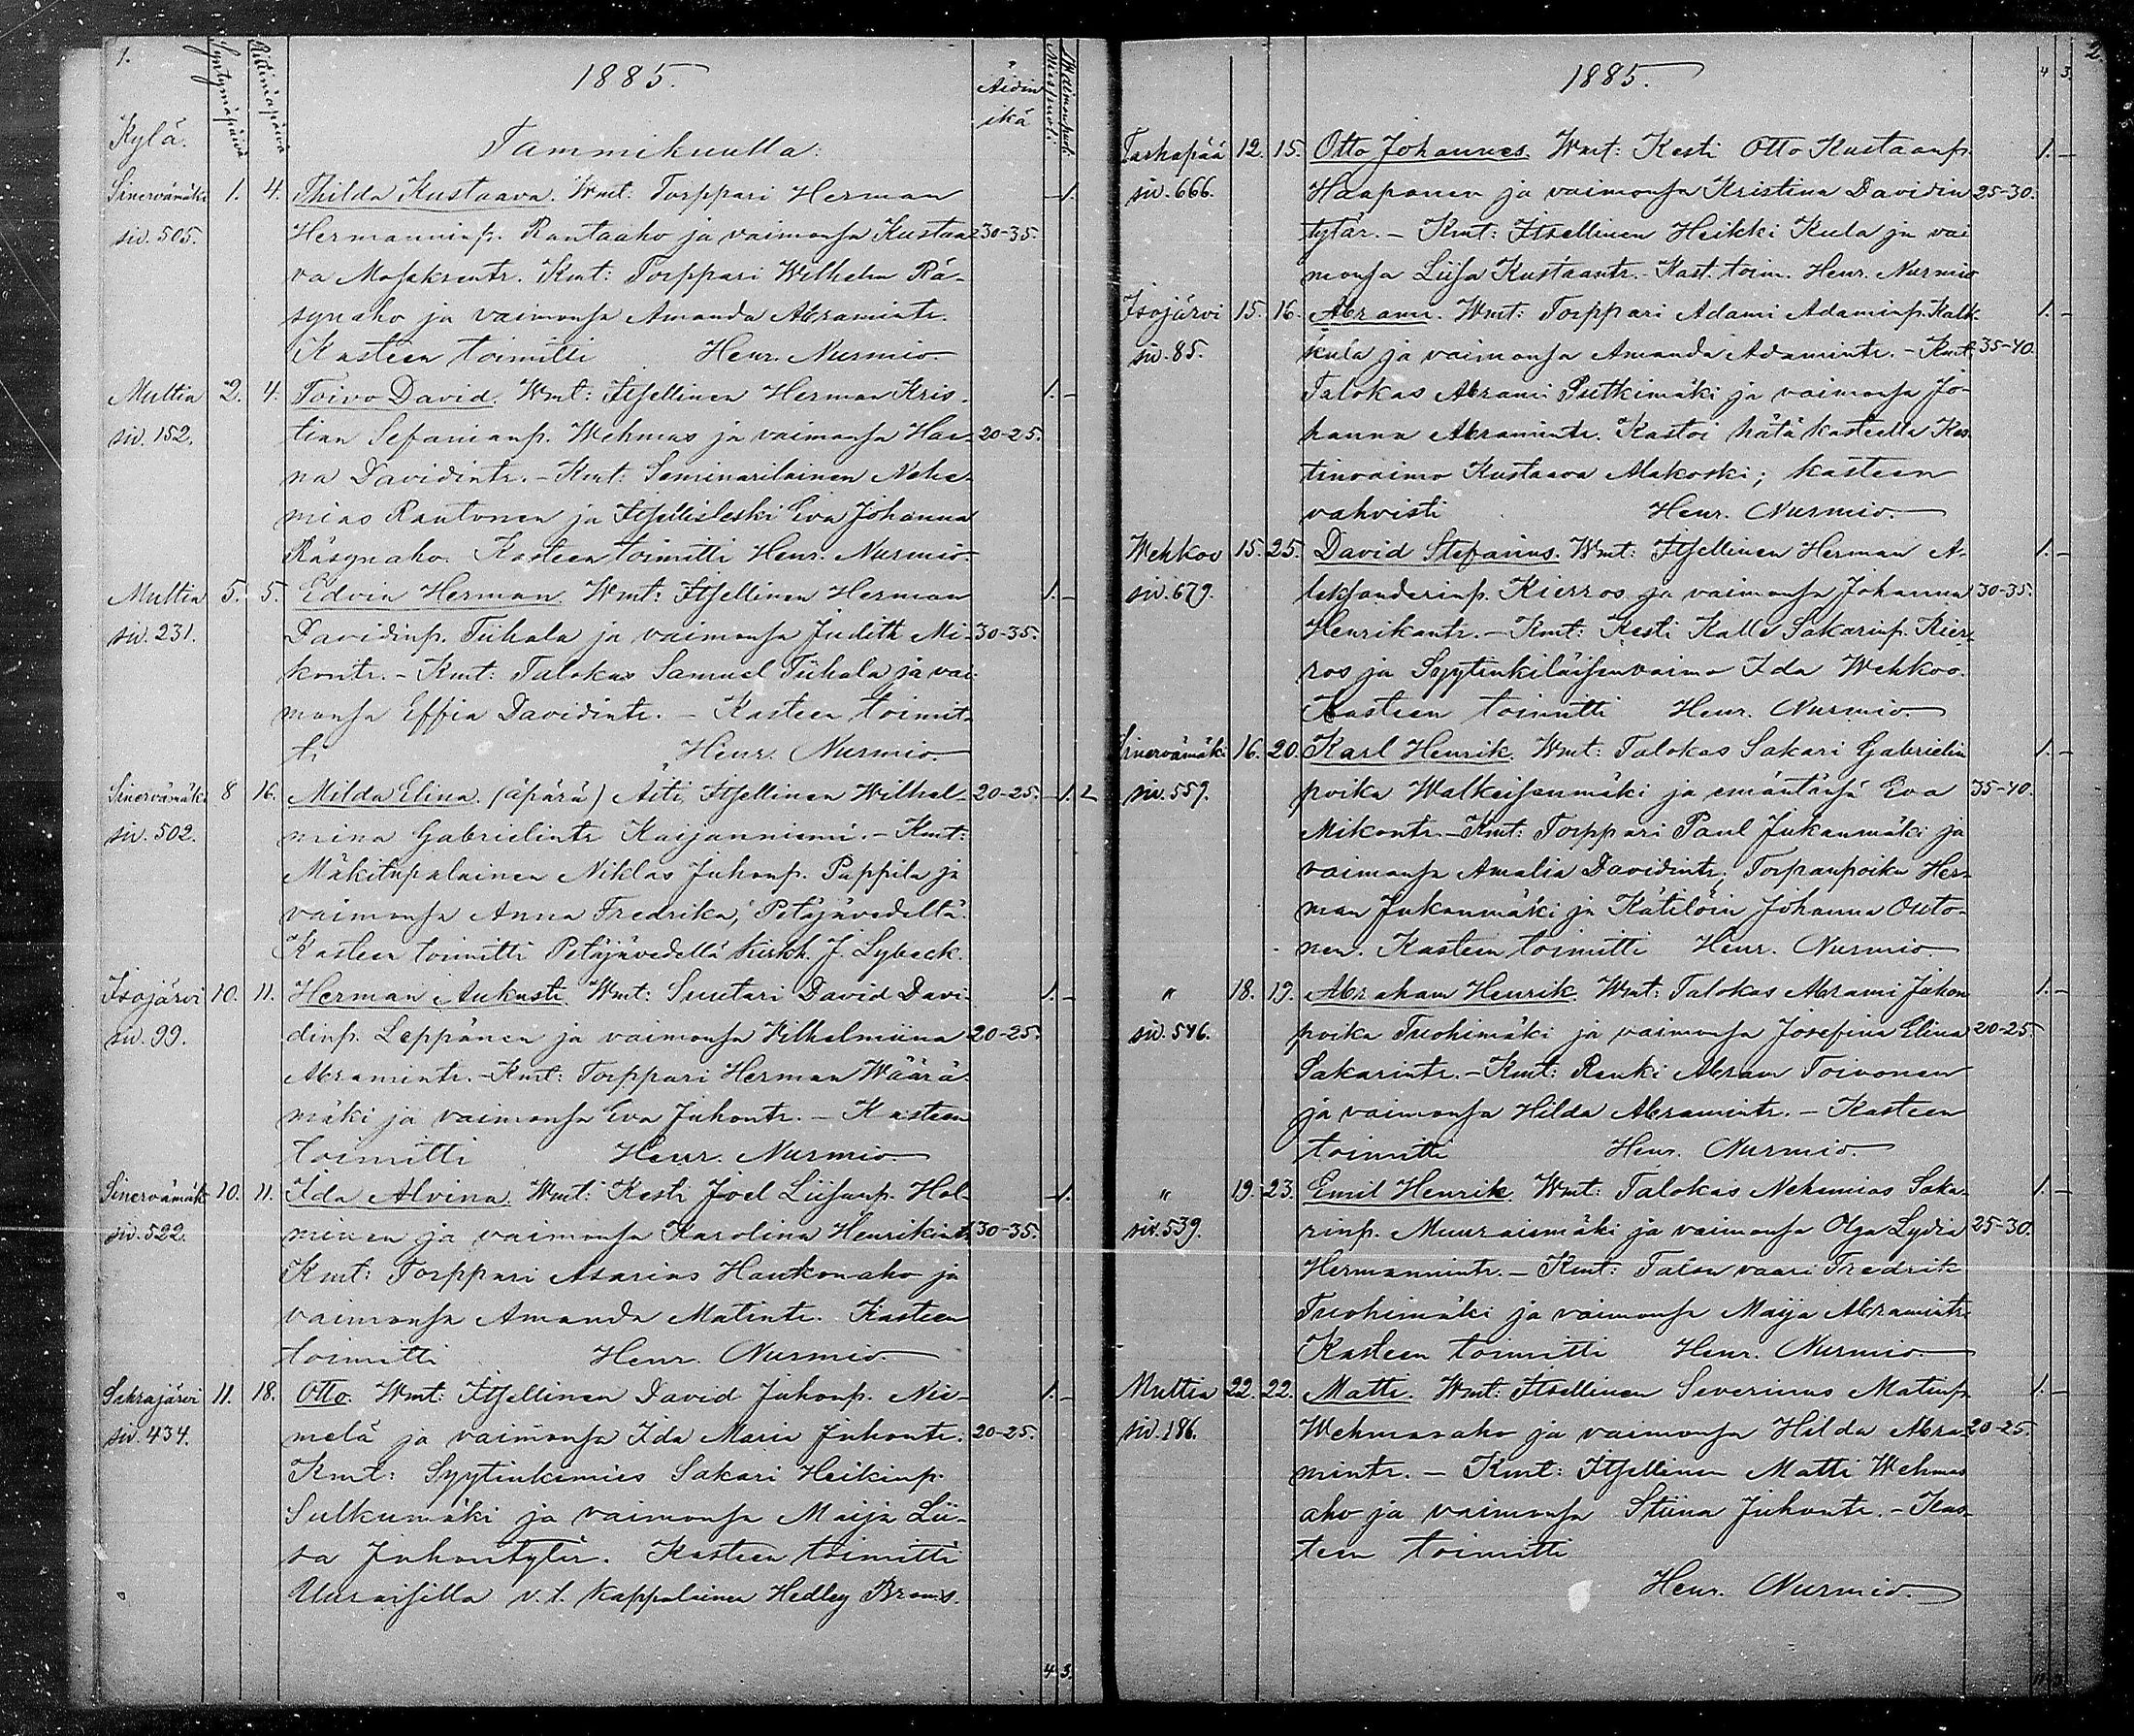 1.
Syntymäpäivä
Ristimäpäivä
1885.
Äidin
ikä
Miespuoli
Waimonpuoli
Kylä.
Tammikuulla.
Sinervämäki 1. 4. Thilda Kustaava. Wmt: Torppari Herman – 1.
siv. 505. Hermanninp. Rantaaho ja vaimonsa Kustaa- 30-35.
va Mosekśentr. Kmt: Torppari Wilhelm Rä-
synaho ja vaimonsa Amanda Abramintr.
Kasteen toimitti Henr. Nurmio
Multia 2. 4. Toivo David. Wmt: Itsellinen Herman Kris- 1. –
siv. 152. tian Sefanianp. Wehmas ja vaimonsa Han- 20-25.
na Davidintr. – Kmt: Seminarilainen Nehe-
mias Rautonen ja Itsellisleski Eva Johanna
Räsynaho. Kasteen toimitti Henr. Nurmio.
Multia 5. 5. Edvin Herman. Wmt: Itsellinen Herman 1. –
siv. 231. Davidinp. Tiihala ja vaimonsa Judith Mi- 30-35.
kontr. – Kmt: Talokas Samuel Tiihala ja vai-
monsa Effia Davidintr. – Kasteen toimit-
ti Henr. Nurmio.
Sinervämäki 8 16. Milda Elina. (äpärä) Äiti, Itsellinen Wilhel- 20-25. – 1. 2
siv. 502. mina Gabrielintr Kaijanniemi. – Kmt:
Mäkitupalainen Niklas Juhonp. Pappila ja
vaimonsa Anna Fredrika, Petäjävedeltä.
Kasteen toimitti Petäjävedellä Kirkh. J. Lybeck.
Isojärvi 10. 11. Herman Aukusti. Wmt: Suutari David Davi- 1. –
siv. 99. dinp. Leppänen ja vaimonsa Vilhelmiina 20-25.
Abramintr. – Kmt: Torppari Herman Wäärä-
mäki ja vaimonsa Eva Juhontr. – Kasteen
toimitti Henr. Nurmio
Sinervämäki 10. 11. Ida Alvina. Wmt: Kesti Joel Liisanp. Hol- – 1.
siv. 522. minen ja vaimonsa Karolina Henrikintr. 30-35.
Kmt: Torppari Asarias Haukonaho ja
vaimonsa Amanda Matintr. Kasteen
toimitti Henr. Nurmio.
Sahrajärvi 11. 18. Otto. Wmt: Itsellinen David Juhonp. Nie- 1. –
siv. 434. melä ja vaimonsa Ida Maria Juhontr. 20-25.
Kmt: Syytinkimies Sakari Heikinp.
Sulkumäki ja vaimonsa Maija Lii-
sa Juhontytär. Kasteen toimitti
Uuraisilla v. t. Kappalainen Hedley Brams.
4. 3.
2.
1885.
4 3.
Tarhapää 12. 15. Otto Johannes. Wmt: Kesti Otto Kustaanp. 1. –
siv. 666. Haaponen ja vaimonsa Kristina Davidin 25-30.
tytär. – Kmt: Itsellinen Heikki Kula ja vai
monsa Liisa Kustaantr. – Kast. toim. Henr. Nurmio
Isojärvi 15. 16. Abrami. Wmt: Torppari Adami Adaminp. Kalk- 1. –
siv. 85. kula ja vaimonsa Amanda Adamintr. – Kmt: 35-40.
Talokas Abrami Putkimäki ja vaimonsa Jo-
hanna Abramintr. Kastoi hätäkasteella Kes-
tinvaimo Kustaava Alakoski; kasteen
vahvisti Henr. Nurmio.
Wehkoo 15. 25. David Stefanus. Wmt: Itsellinen Herman A- 1. –
siv. 679. leksanderinp. Kierros ja vaimonsa Johanna 30-35.
Henrikintr. – Kmt: Kesti Kalle Sakarinp. Kier-
ros ja Syytinkiläisenvaimo Ida Wehkoo.
Kasteen toimitti Henr. Nurmio.
Sinervämäki 16. 20. Karl Henrik. Wmt: Talokas Sakari Gabrielin 1. –
siv. 559. poika Walkeisenmäki ja emäntänsä Eva 35-40.
Mikontr. – Kmt: Torppari Paul Jukanmäki ja
vaimonsa Amalia Davidintr. Torpanpoika Her-
man Jukanmäki ja Kätilöin Johanna Outo-
nen. Kasteen toimitti Henr. Nurmio.
" 18. 19. Abraham Henrik. Wmt: Talokas Abrami Juhon 1. –
siv. 546. poika Tuohimäki ja vaimonsa Josefina Elina 20-25.
Sakarintr. – Kmt: Renki Abram Toivonen
ja vaimonsa Hilda Abramintr. – Kasteen
toimitti Henr. Nurmio.
" 19. 23. Emil Henrik. Wmt: Talokas Nehemias Saka- 1. –
siv. 539. rinp. Muuraismäki ja vaimonsa Olga Lydia 25-30.
Hermannintr. – Kmt: Talon vaari Fredrik
Tuohimäki ja vaimonsa Maija Abramintr.
Kasteen toimitti Henr. Nurmio.
Multia 22. 22. Matti. Wmt: Itsellinen Severinus Matinp. 1. –
siv. 186. Wehmasaho ja vaimonsa Hilda Abra- 20-25.
mintr. – Kmt: Itsellinen Matti Wehmas
aho ja vaimonsa Stiina Juhontr. – Kas-
teen toimitti
Henr. Nurmio.